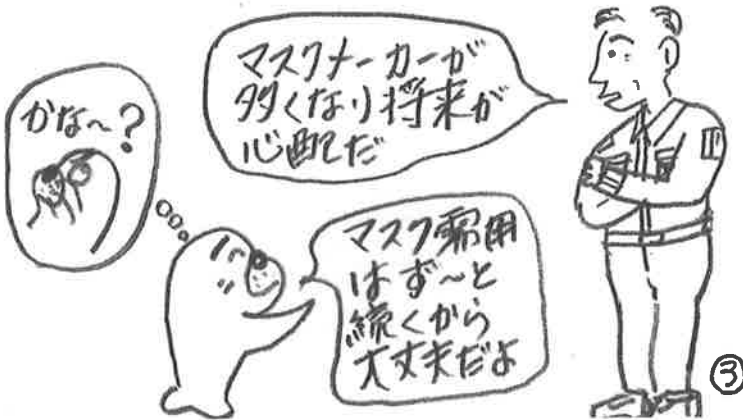 マスクメーカーが
多くなり将来が
心配だ
マスク需用
はず〜と
続くから
大丈夫だよ
かな〜？
③